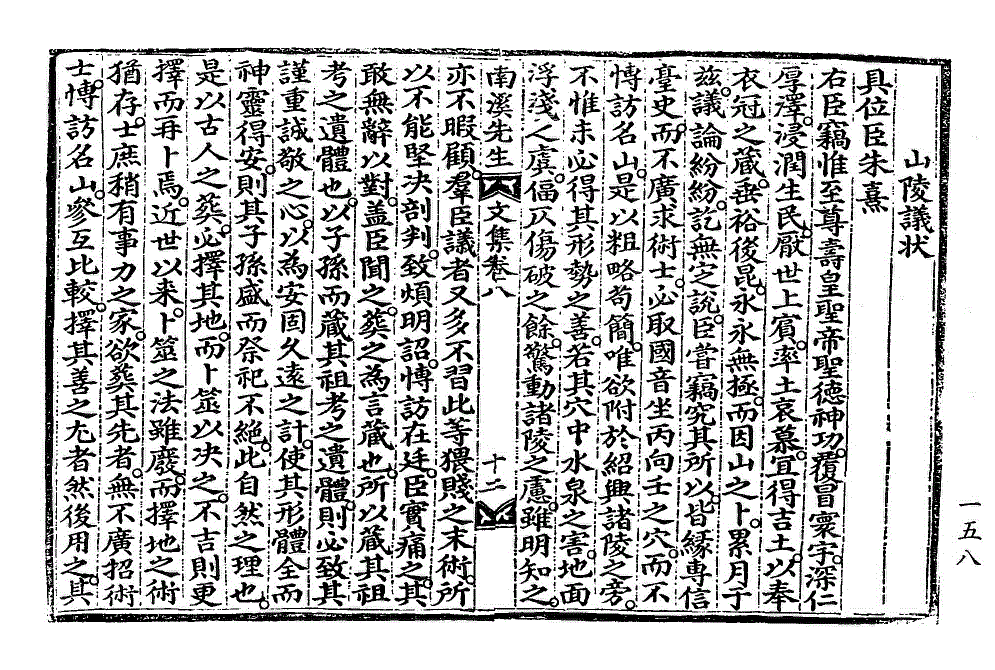 山陵議状
具位臣朱熹
右臣竊惟至尊壽皇聖帝聖德神功。覆冒寰宇。深仁
厚澤。浸潤生民。厭世上賓。率土哀慕。宜得吉土。以奉
衣冠之蔵。垂裕後昆。永永無極。而因山之卜。累月于
玆。議論紛紛。訖無定說。臣嘗竊究其所以。皆緣專信
臺史。而不廣求術士。必取國音坐丙向壬之穴。而不
博訪名山。是以粗略苟簡。唯欲附於紹興諸陵之旁。
不惟未必得其形勢之善。若其穴中水泉之害。地面
浮淺人虞。偪仄傷破之餘。驚動諸陵之慮。雖明知之。
南溪先生 文集卷八 十二
亦不暇顧。羣臣議者又多不習此等猥賤之末術。所
以不能堅決剖判。致煩明詔。博訪在廷。臣實痛之。其
敢無辭以對。盖臣聞之。葬之為言蔵也。所以蔵其祖
考之遺體也。以子孫而蔵其祖考之遺體。則必致其
謹重誠敬之心。以為安固久遠之計。使其形體全而
神靈得安。則其子孫盛而祭祀不絕。此自然之理也。
是以古人之葬。必擇其地。而卜筮以决之。不吉則更
擇而再卜焉。近世以来。卜筮之法雖廢。而擇地之術
猶存。士庶稍有事力之家。欲葬其先者。無不廣招術
士。博訪名山。參互比較。擇其善之尤者然後用之。其
一五八